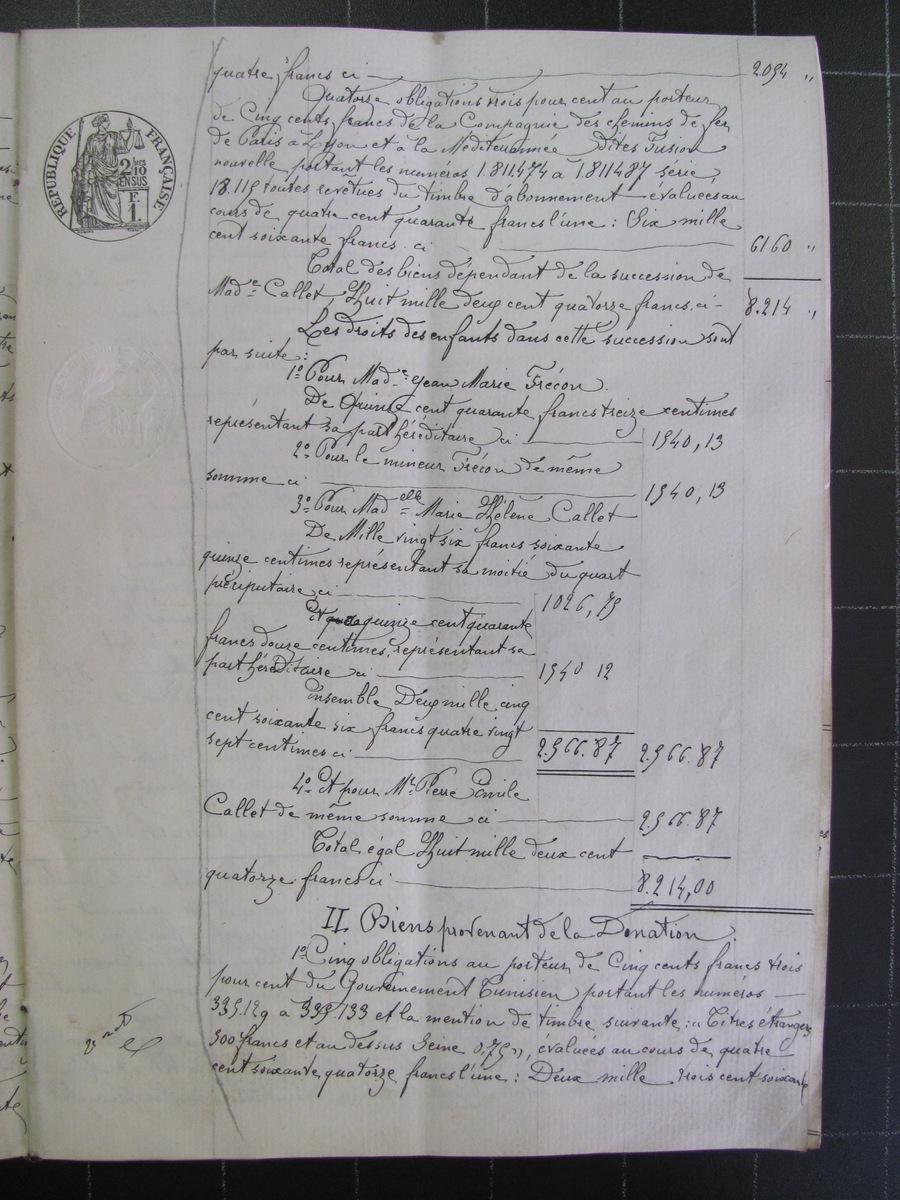 quatre francs ci 2.054 "
Quatorze obligations trois pour cent au porteur
de Cinq cents francs de la Compagnie des chemins de fer
de Paris à Lyon et à la Méditerannée Dites Fusion
nouvelle portant les numéros 1.811474 à 1.811487 série,
18.115 toutes revêtues du timbre d'abonnement évaluées au
cours de quatre cent quarante francs l'une : Six mille
cent soixante francs. ci 6160 "
Total des biens dépendant de la succession de
Made Callet, Huit mille deux cent quatorze francs. ci - 8.214 "
Les droits des enfants dans cette succession sont
par suite :
1o Pour Made Jean Marie Frécon.
De Quinze cent quarante francs treize centimes
représentant sa part héréditaire ci 1540,13
2o Pour le mineur Frécon de même
somme ci 1540,13
3o Pour Madelle Marie Hélène Callet
De Mille vingt six francs soixante
quinze centimes représentant sa moitié du quart
préciputaire ci 1026,75
Et quinize cent quarante
francs douze centimes, représentant sa
part héréditaire ci 1540 12
Ensemble Deux mille cinq
cent soixante six francs quatre vingt
sept centimes ci 2566.87 2566.87
4o Et pour Mr Pierre Emile
Callet de même somme ci 2566.87
Total égal Huit mille deux cent
quatorze francs ci 8.214,00
II. Biens provenant de la Donation.
1o Cinq obligations au porteur de Cinq cents francs trois
pour cent du Gouvernement Tunisien portant les numéros
335.129 à 335.133 et la mention de timbre suivante : "Titres étrangers
500 francs et au dessus Seine 0,75", évaluées au cours de quatre
cent soixante quatorze francs l'une : Deux mille trois cent soixante
RÉPUBLIQUE FRANÇAISE
2/10 EN SUS
F.
1.